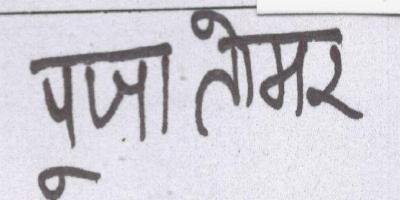 पूजा तोमर